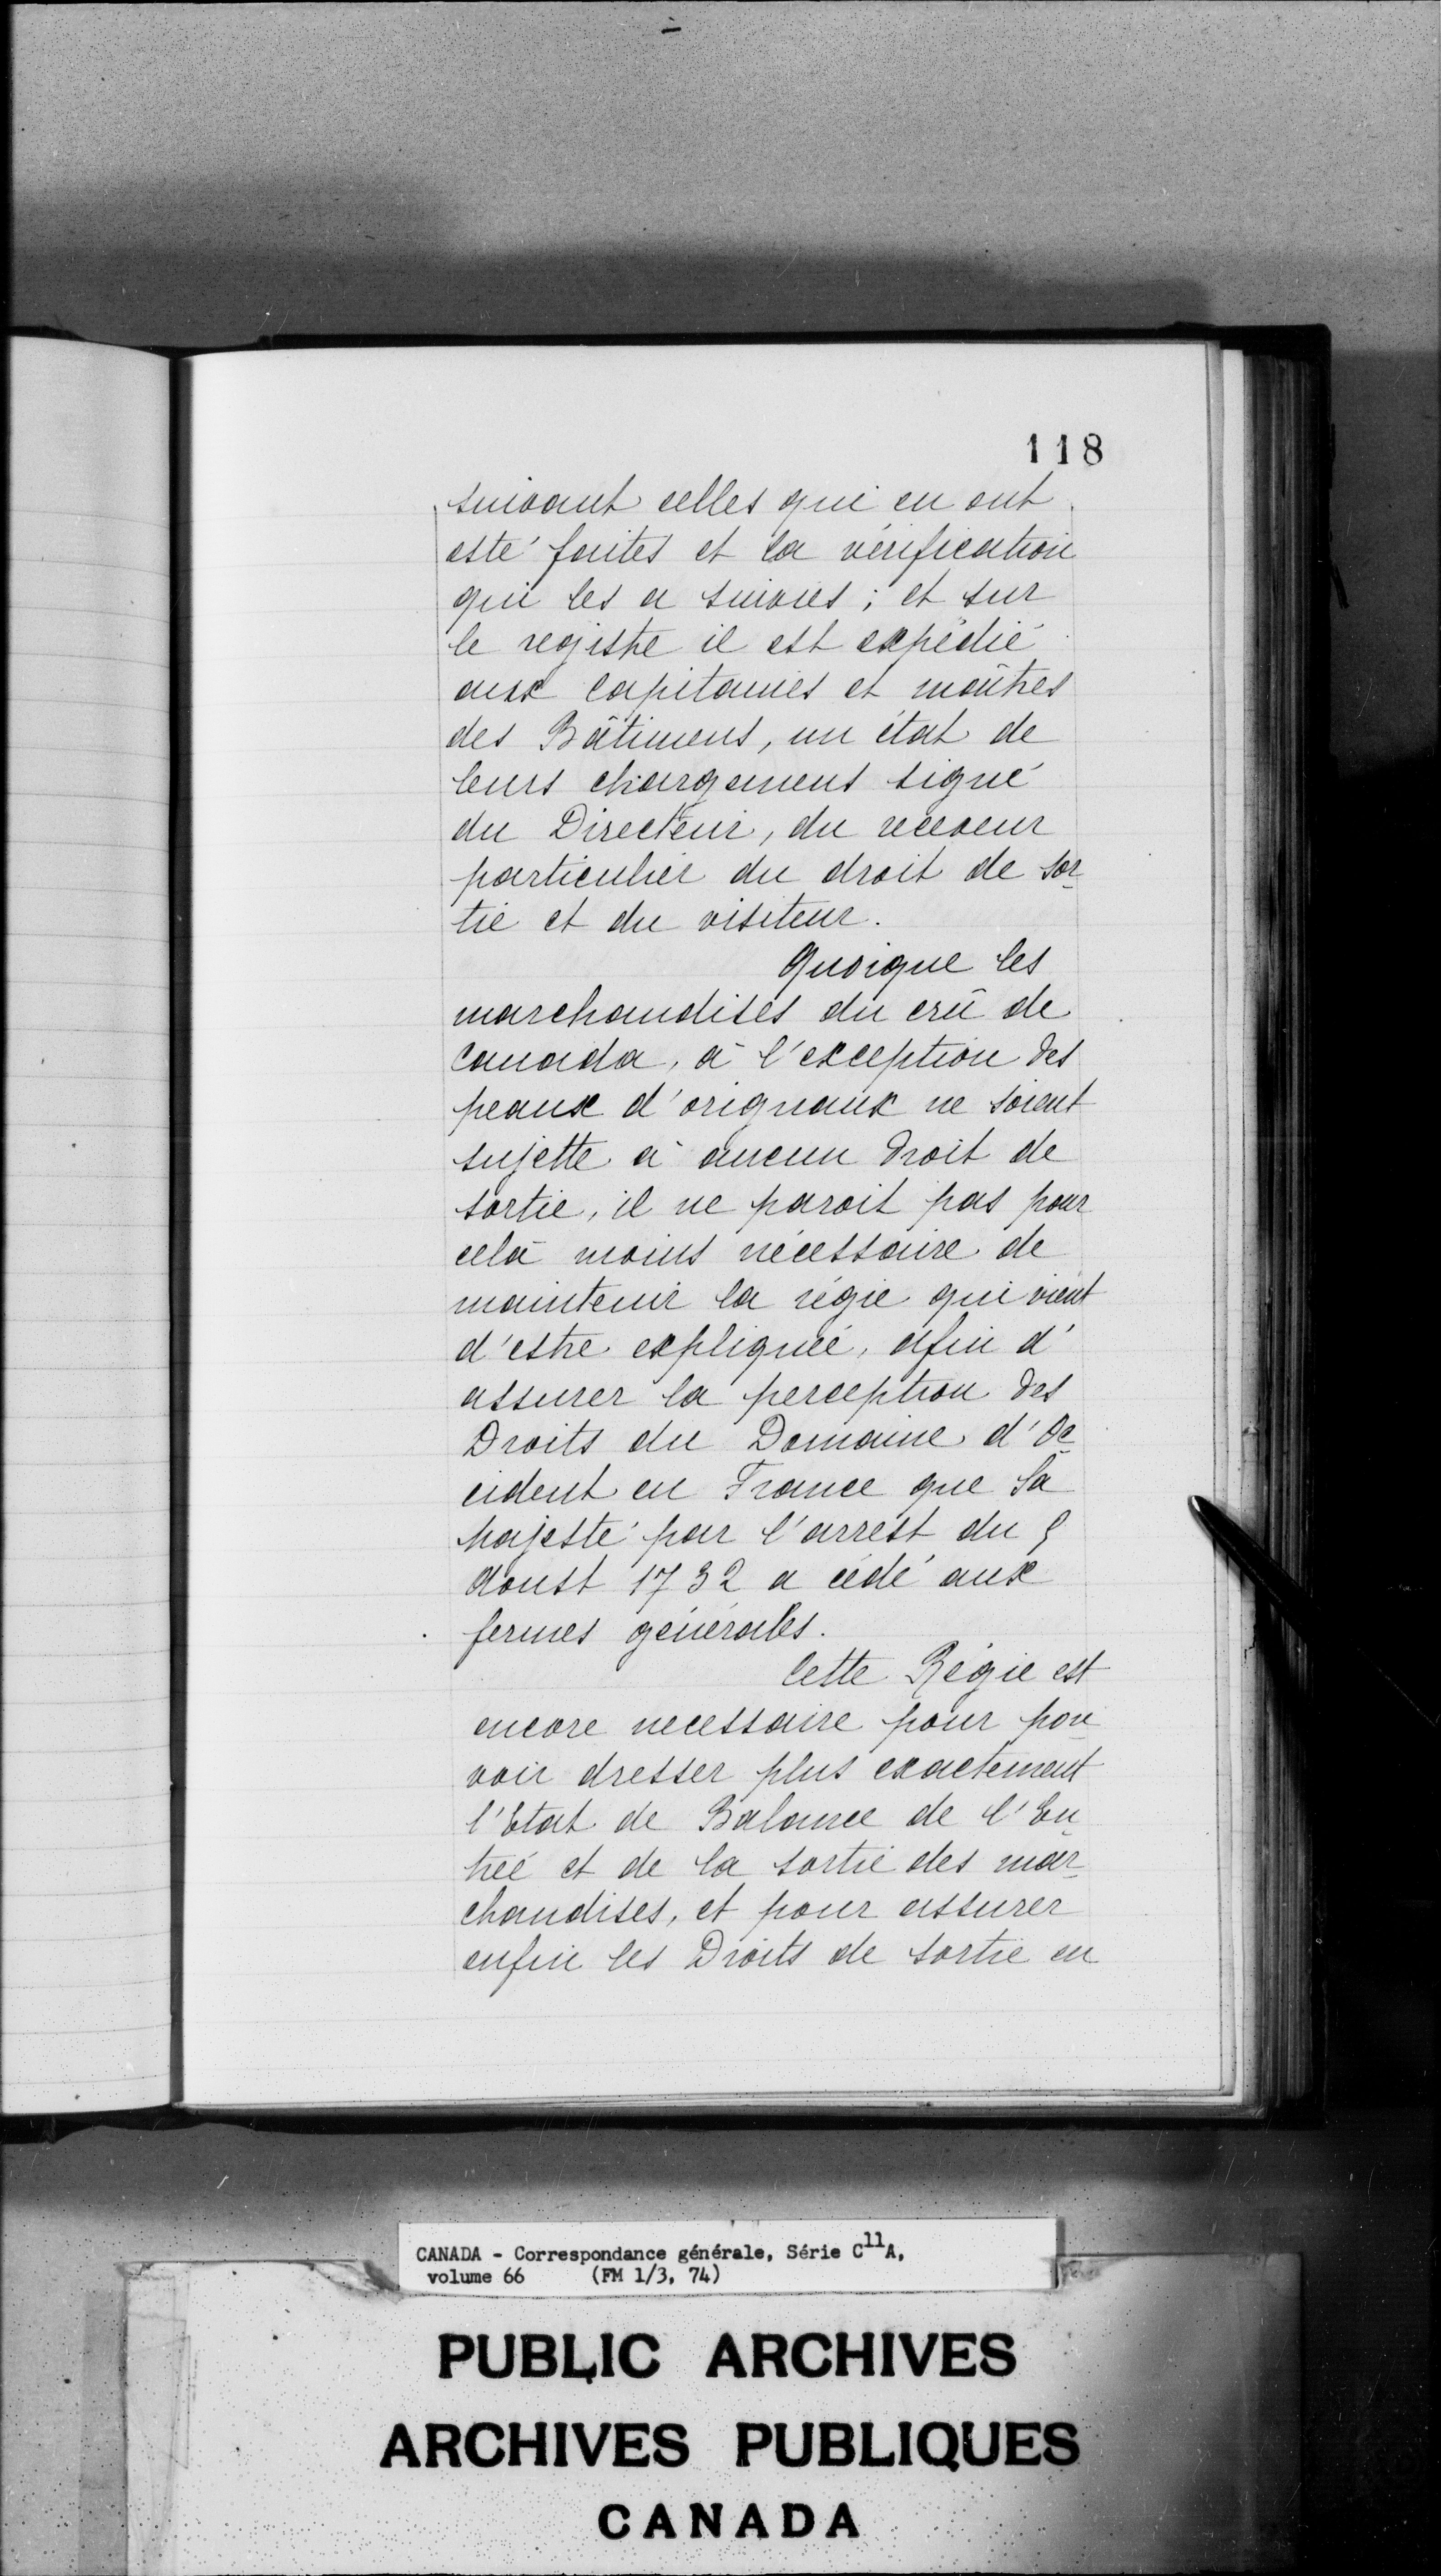 118
suivant celles qui en ont
esté faites et la vérification
qui les a suivies ; et sur
le registre il est expédié
aux capitaines et maîtres
des Bâtimens, un état de
leurs chargemens signé
du Directeur, du receveur
particulier du droit de sor
tie et du visiteur.
Quoique les
marchandises du crû de
Canada, à l'exception des
peaux d'orignaux ne soient
sujette à aucun droit de
sortie, il ne paroit pas pour
celà moins nécessaire de
maintenir la régie qui vient
d'estre expliquée, afin d'
assurer la perception des
Droits du Domaine d'Oc
cident en France que Sa
Majesté par l'arrést du 9
Aoust 1732 a cédé aux
fermes générales.
Cette Régie est
encore necessaire pour pou
voir dresser plus exactement
l'Etat de Balance de l'En
trée et de la sortie des mar
chandises, et pour assurer
enfin les Droits de sortie en
CANADA - Correspondance générale, Série C11A,
volume 66 (FM 1/3, 74)
PUBLIC ARCHIVES
ARCHIVES PUBLIQUES
CANADA